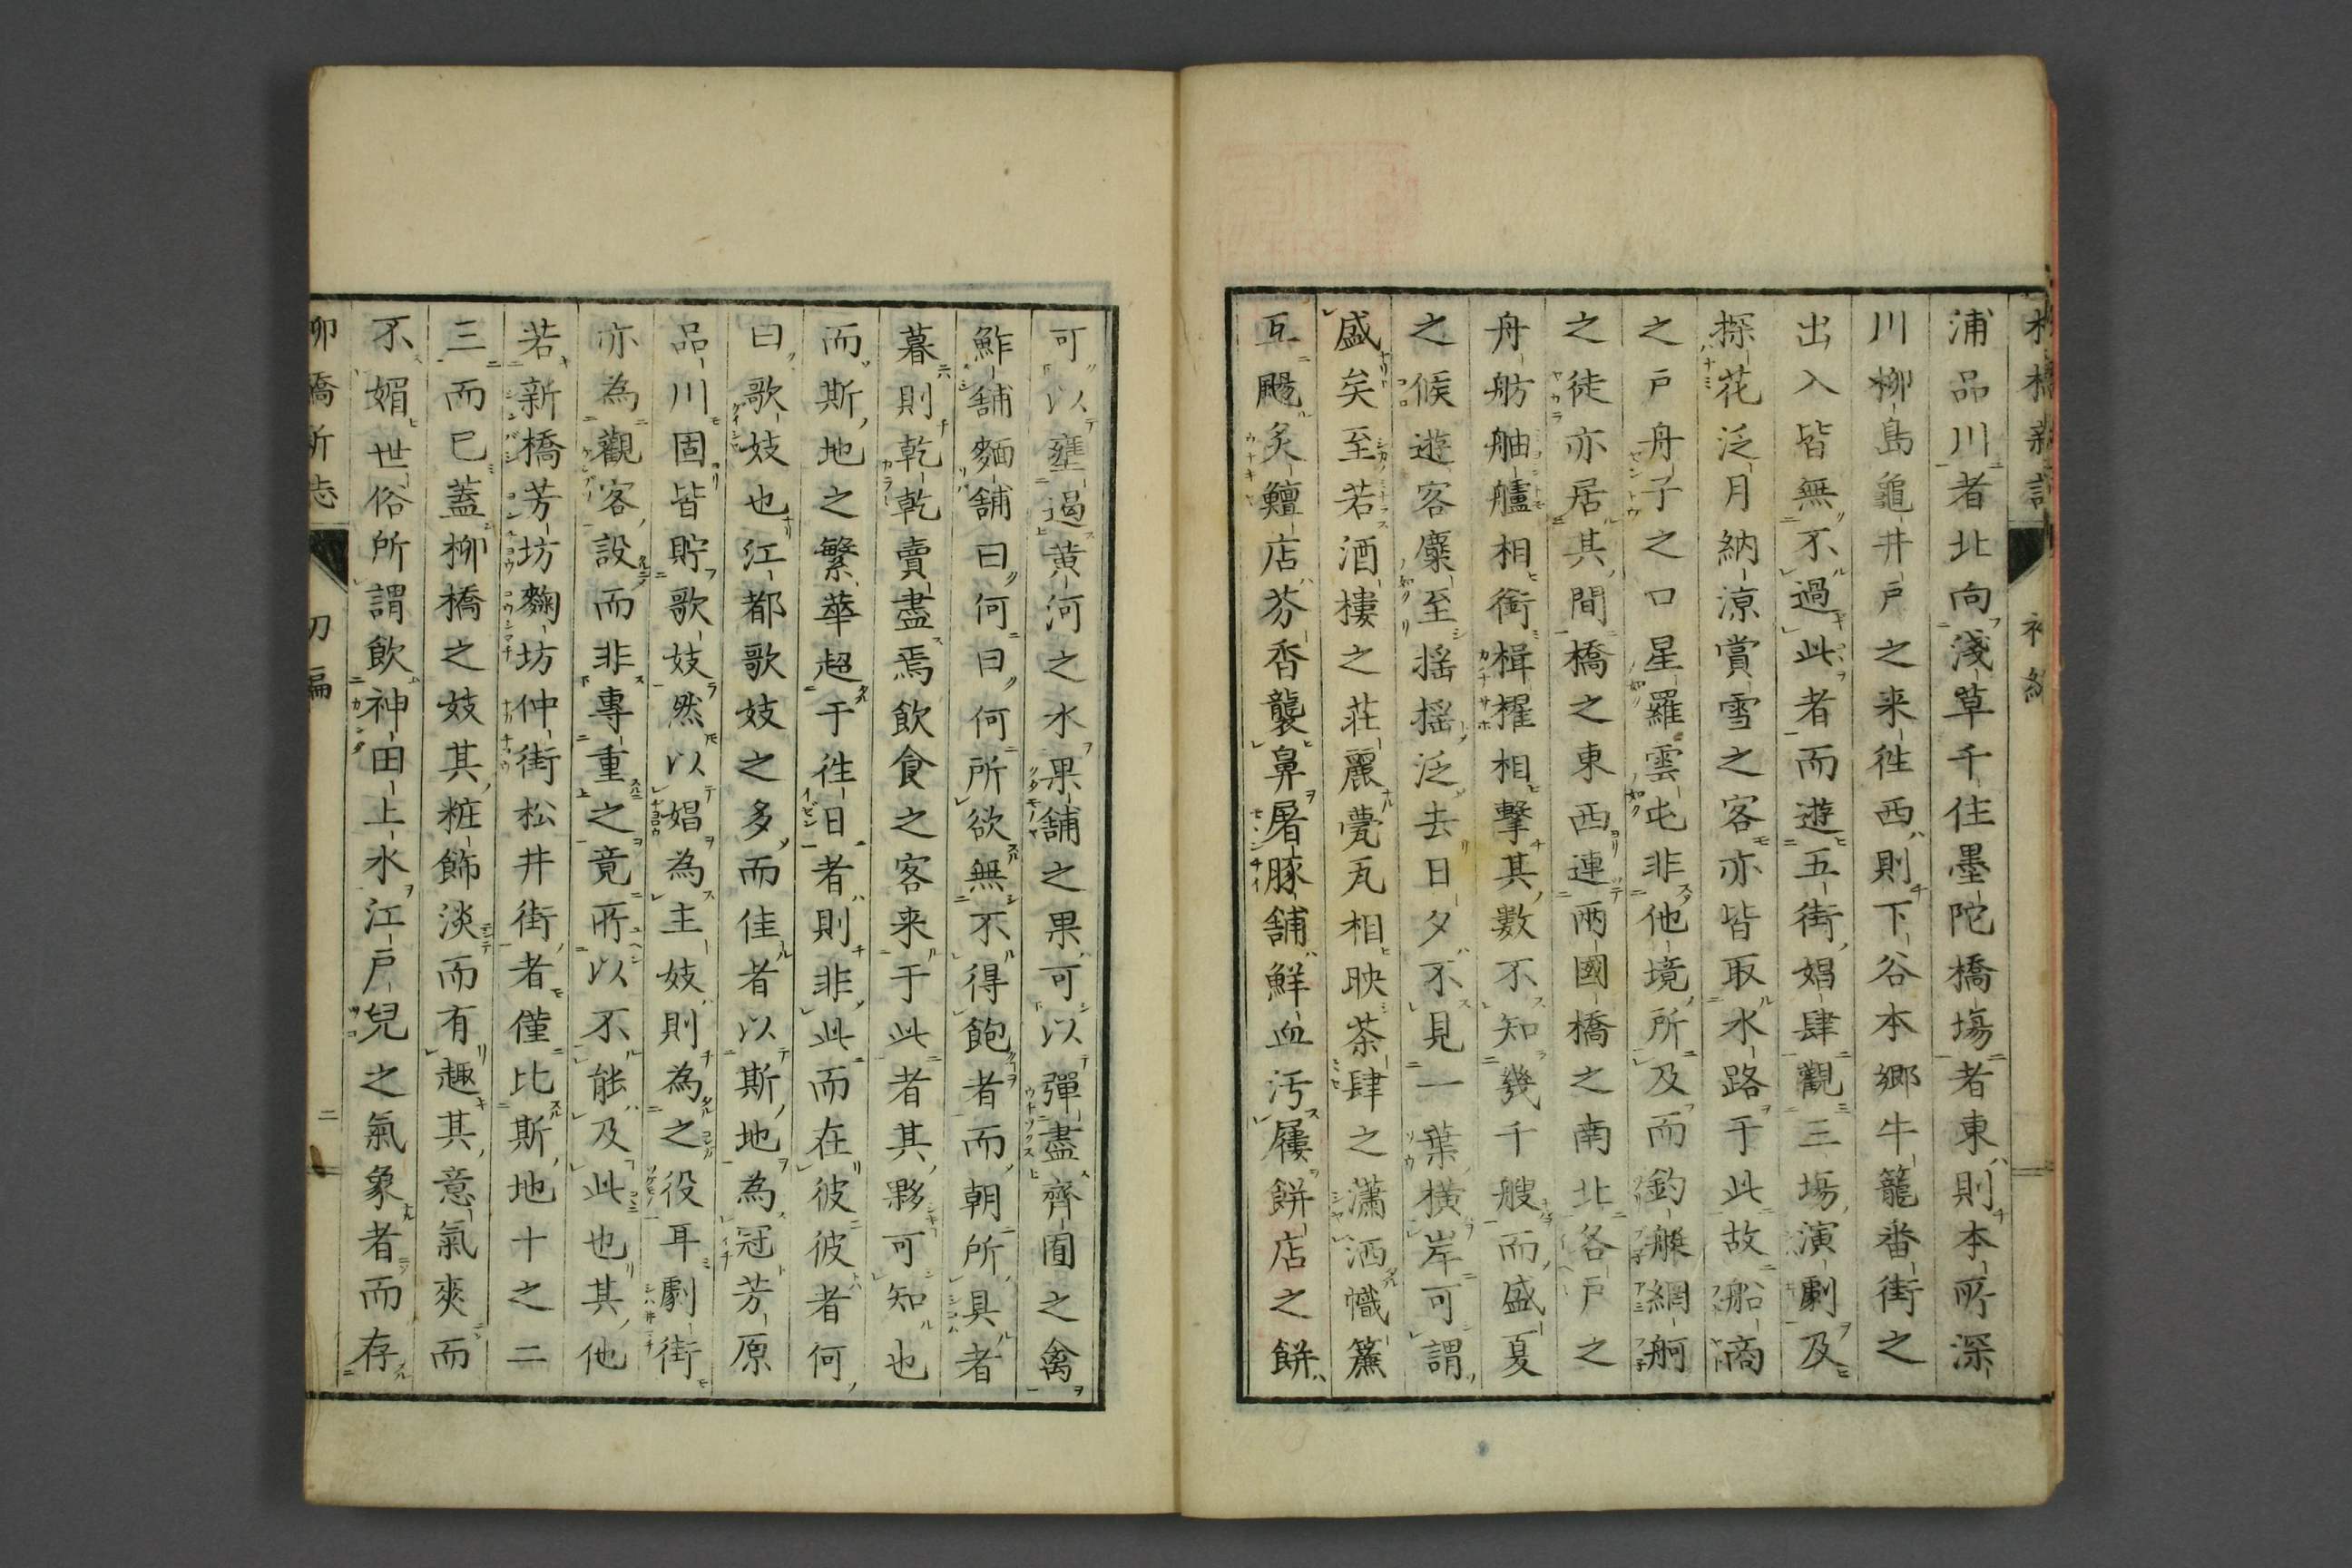 浦品川者北向淺草千住墨陀橋塲者東則本所深
川柳島龜井戸之来徃西則下谷本郷牛籠番街之
出入皆無不過此者而遊五街娼肆觀三塲演劇及
探花泛月納涼賞雪之客亦皆取水路于此故船商
之戸舟子之口星羅雲屯非他境所及而釣艇網舸
之徒亦居其間橋之東西連兩國橋之南北各戸之
舟舫舳艫相銜楫櫂相擊其數不知幾千艘而盛夏
之候遊客麋至搖搖泛去日夕不見一葉橫岸可謂
盛矣至若酒樓之莊麗甍瓦相映茶肆之瀟洒幟簾
互颺炙鱣店芬香襲鼻屠豚舖鮮血汚屨餅店之餅
可以壅遏黄河之水果舖之果可以彈盡齊囿之禽
鮓舖麵舖曰何曰何所欲無不得飽者而朝所具者
暮則乾乾賣盡焉飲食之客来于此者其夥可知也
而斯地之繁華超于徃日者則非此而在彼彼者何
曰歌妓也江都歌妓之多而佳者以斯地為冠芳原
品川固皆貯歌妓然以娼為主妓則為之役耳劇街
亦為觀客設而非專重之竟所以不能及此也其他
若新橋芳坊麴坊仲街松井街者僅比斯地十之二
三而已蓋柳橋之妓其粧飾淡而有趣其意氣爽而
不媚世俗所謂飲神田上水江戸兒之氣象者而存
柳橋新志
初編
二